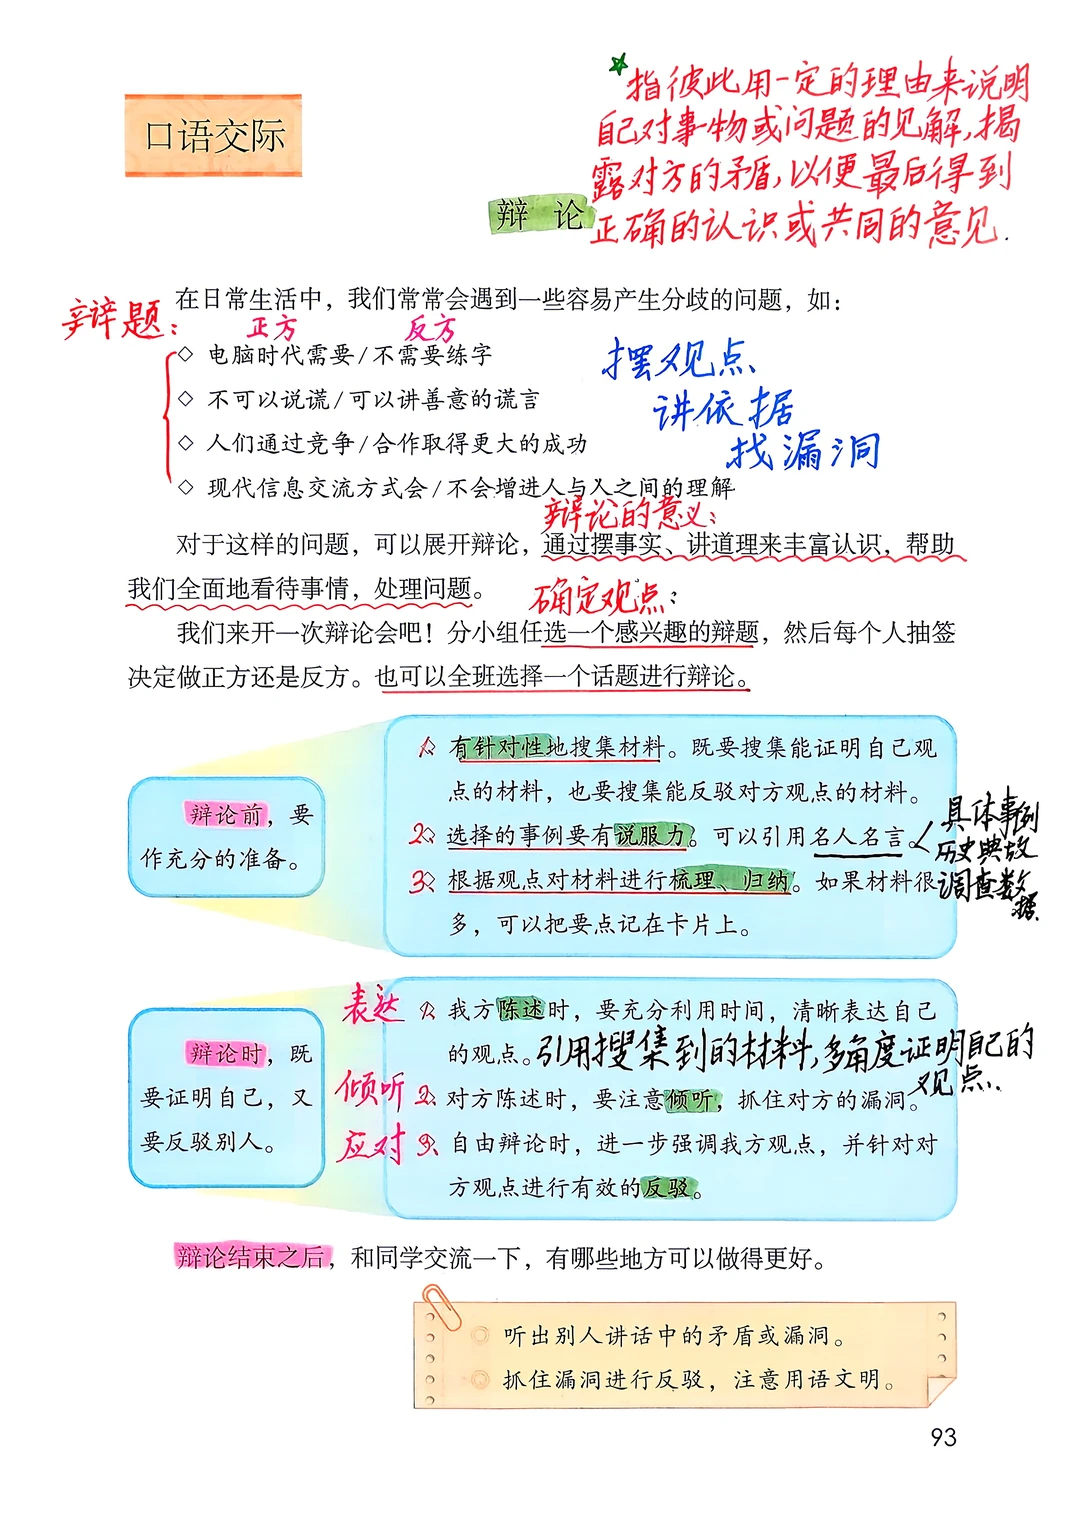 ☆指彼此用一定的理由来说明
自己对事物或问题的见解,揭
露对方的矛盾,以便最后得到
正确的认识或共同的意见.
口语交际
辩 论
在日常生活中，我们常常会遇到一些容易产生分歧的问题，如：
辩题:
正方 反方
◇ 电脑时代需要/不需要练字
◇ 不可以说谎/可以讲善意的谎言
◇ 人们通过竞争/合作取得更大的成功
◇ 现代信息交流方式会/不会增进人与人之间的理解
摆观点
讲依据
找漏洞
辩论的意义:
对于这样的问题，可以展开辩论，通过摆事实、讲道理来丰富认识，帮助
我们全面地看待事情，处理问题。
确定观点:
我们来开一次辩论会吧！分小组任选一个感兴趣的辩题，然后每个人抽签
决定做正方还是反方。也可以全班选择一个话题进行辩论。
辩论前，要
作充分的准备。
1、有针对性地搜集材料。既要搜集能证明自己观
点的材料，也要搜集能反驳对方观点的材料。
2、选择的事例要有说服力。可以引用名人名言。
3、根据观点对材料进行梳理、归纳。如果材料很
多，可以把要点记在卡片上。
具体事例
历史典故
调查数
据
辩论时，既
要证明自己，又
要反驳别人。
表达 1、我方陈述时，要充分利用时间，清晰表达自己
的观点。引用搜集到的材料,多角度证明自己的
观点.
倾听 2、对方陈述时，要注意倾听，抓住对方的漏洞。
应对 3、自由辩论时，进一步强调我方观点，并针对对
方观点进行有效的反驳。
辩论结束之后，和同学交流一下，有哪些地方可以做得更好。
◎ 听出别人讲话中的矛盾或漏洞。
◎ 抓住漏洞进行反驳，注意用语文明。
93